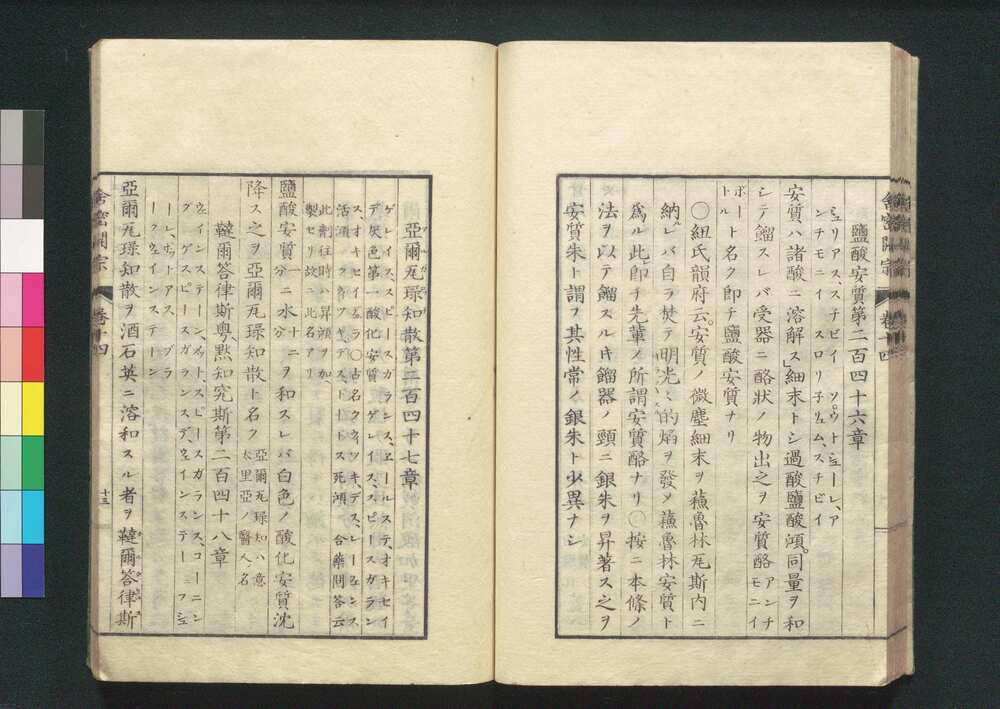 鹽酸安質第二百四十六章
ミュリアス、スチビイ ソウトシューレ、ア
ンチモニイ スロリチュム、スチビイ
安質ハ諸酸ニ溶解ス」細末トシ過酸鹽酸澒同量ヲ和
シテ餾スレバ受器ニ酪狀ノ物出之ヲ安質酪 アンチ モニイ
ボートル ト名ク即チ鹽酸安質ナリ
〇紐氏韻府云。安質ノ微塵細末ヲ蘓魯林瓦斯内ニ
納レバ自ラ焚テ明光、的焰ヲ發メ蘓魯林安質ト
爲ル此即チ先輩ノ所謂安質酪ナリ〇按ニ本條ノ
法ヲ以テ餾スルキ餾器ノ頸ニ銀朱ヲ昇著ス之ヲ
安質朱ト謂フ其性常ノ銀朱ト少異ナシ
舎密開宗 卷十四
亞爾瓦琭知散第二百四十七章
ゲレイススピースガランス、ヱールステ、オキセイ
デ 灰色第一酸化安質 ゲレイススピースガラン
此劑往時ハ昇澒ヲ加、
製セリ故ニ此名アリ
鹽酸安質一分ニ水十二分ヲ和スレバ白色ノ酸化安質沈
降ス之ヲ亞爾瓦琭知散ト名フ 亞爾瓦琭知ハ意
太里亞ノ醫人ノ名
韃爾答律斯粤、黙知究斯第二百四十八章
亞爾瓦琭知散ヲ酒石英ニ溶和スル者ヲ韃爾答律斯
舎密開宗 卷十四 十三